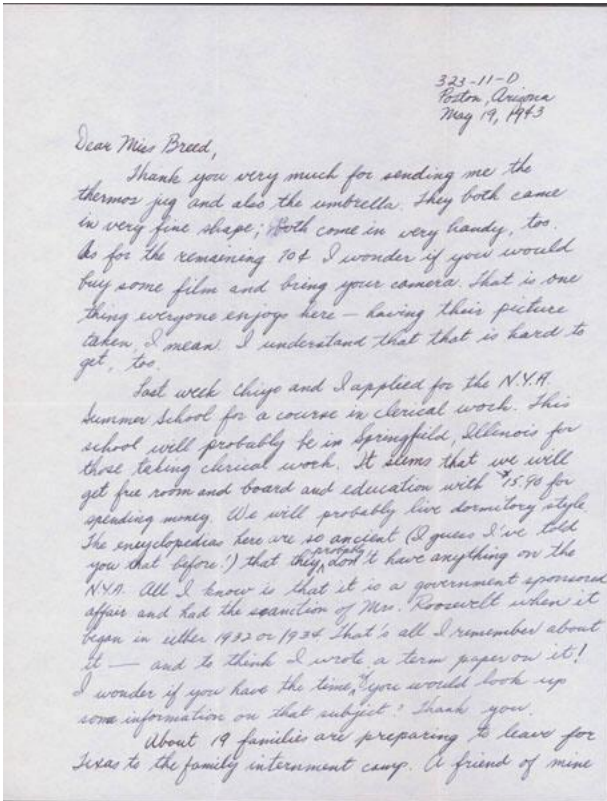 323-11-D
Poston, Arizona
May 19, 1943
Dear Miss Breed,
Thank you very much for sending me the
thermos jug and also the umbrella. They both came
in very fine shape; Both come in very handy, too.
As for the remaining 70¢ I wonder if you would
buy some film and bring your camera. That is one
thing everyone enjoys here — having their picture
taken, I mean. I understand that that is hard to
get, too.
Last week Chiyo and I applied for the N.Y.A.
Summer School for a course in clerical work. This
school will probably be in Springfild, Illinois for
those taking clerical work. It seems that we will
get free room and board and education with $15.90 for
spending money. We will probably live dormitory style.
The encyclopedias here are so ancient (I guess I've told
you that before!) that they probably don't have anything on the
N.Y.A. All I know is that it is a government sponsored
affair and had the sanction of Mrs. Roosevelt when it
began in either 1932 or 1934. That's all I remember about
it — and to think I wrote a term paper on it!
I wonder if you have the time, if you would look up
some information on that subject? Thank you.
About 19 families are preparing to leave for
Texas to the family internment camp. A friend of mine